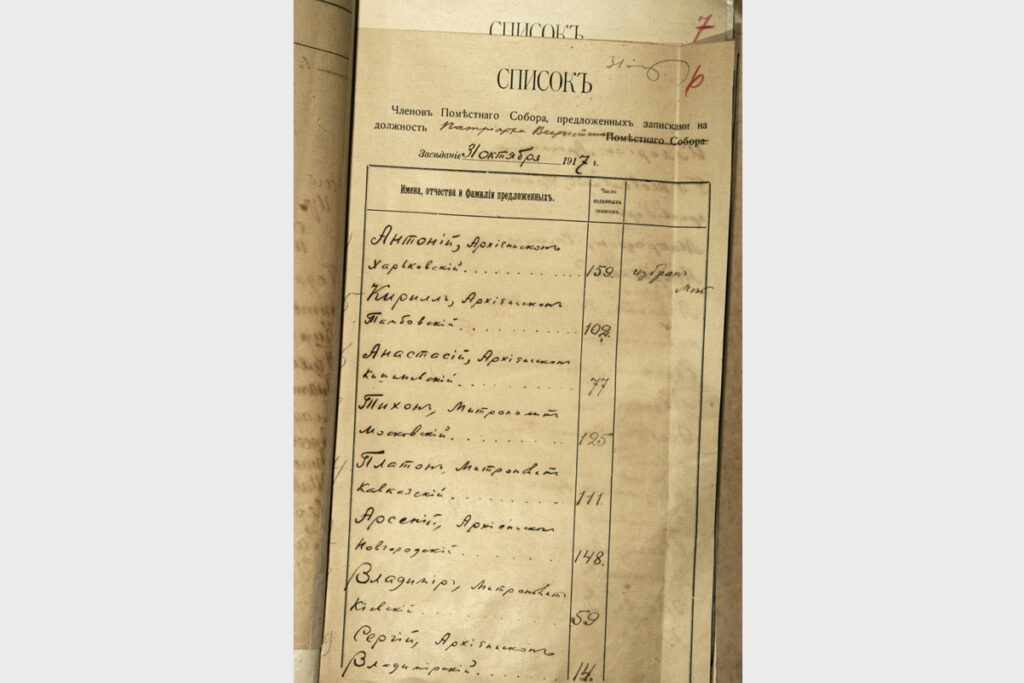 СПИСОКЪ
7
6
СПИСОКЪ
Членовъ Помѣстнаго Собора, предложенныхъ записками на
должность Патріарха Помѣстнаго Собора.
Засѣданіе 31 октября 1917 г.
Имена, отчества и фамилія предложенныхъ.
Число
поданныхъ
записокъ.
Антоній, Архіепископъ
Харьковскій. 159. избранъ
Кириллъ, Архіепископъ
Тамбовскій. 102.
Анастасій, Архіепископъ
Кишиневскій. 77
Тихонъ, Митрополитъ
Московскій. 125
Платонъ, Митрополитъ
Кавказскій. 111.
Арсеній, Архіепископъ
Новгородскій. 148.
Владиміръ, Митрополитъ
Кіевскій. 59
Сергій, Архіепископъ
Владимірскій. 14.